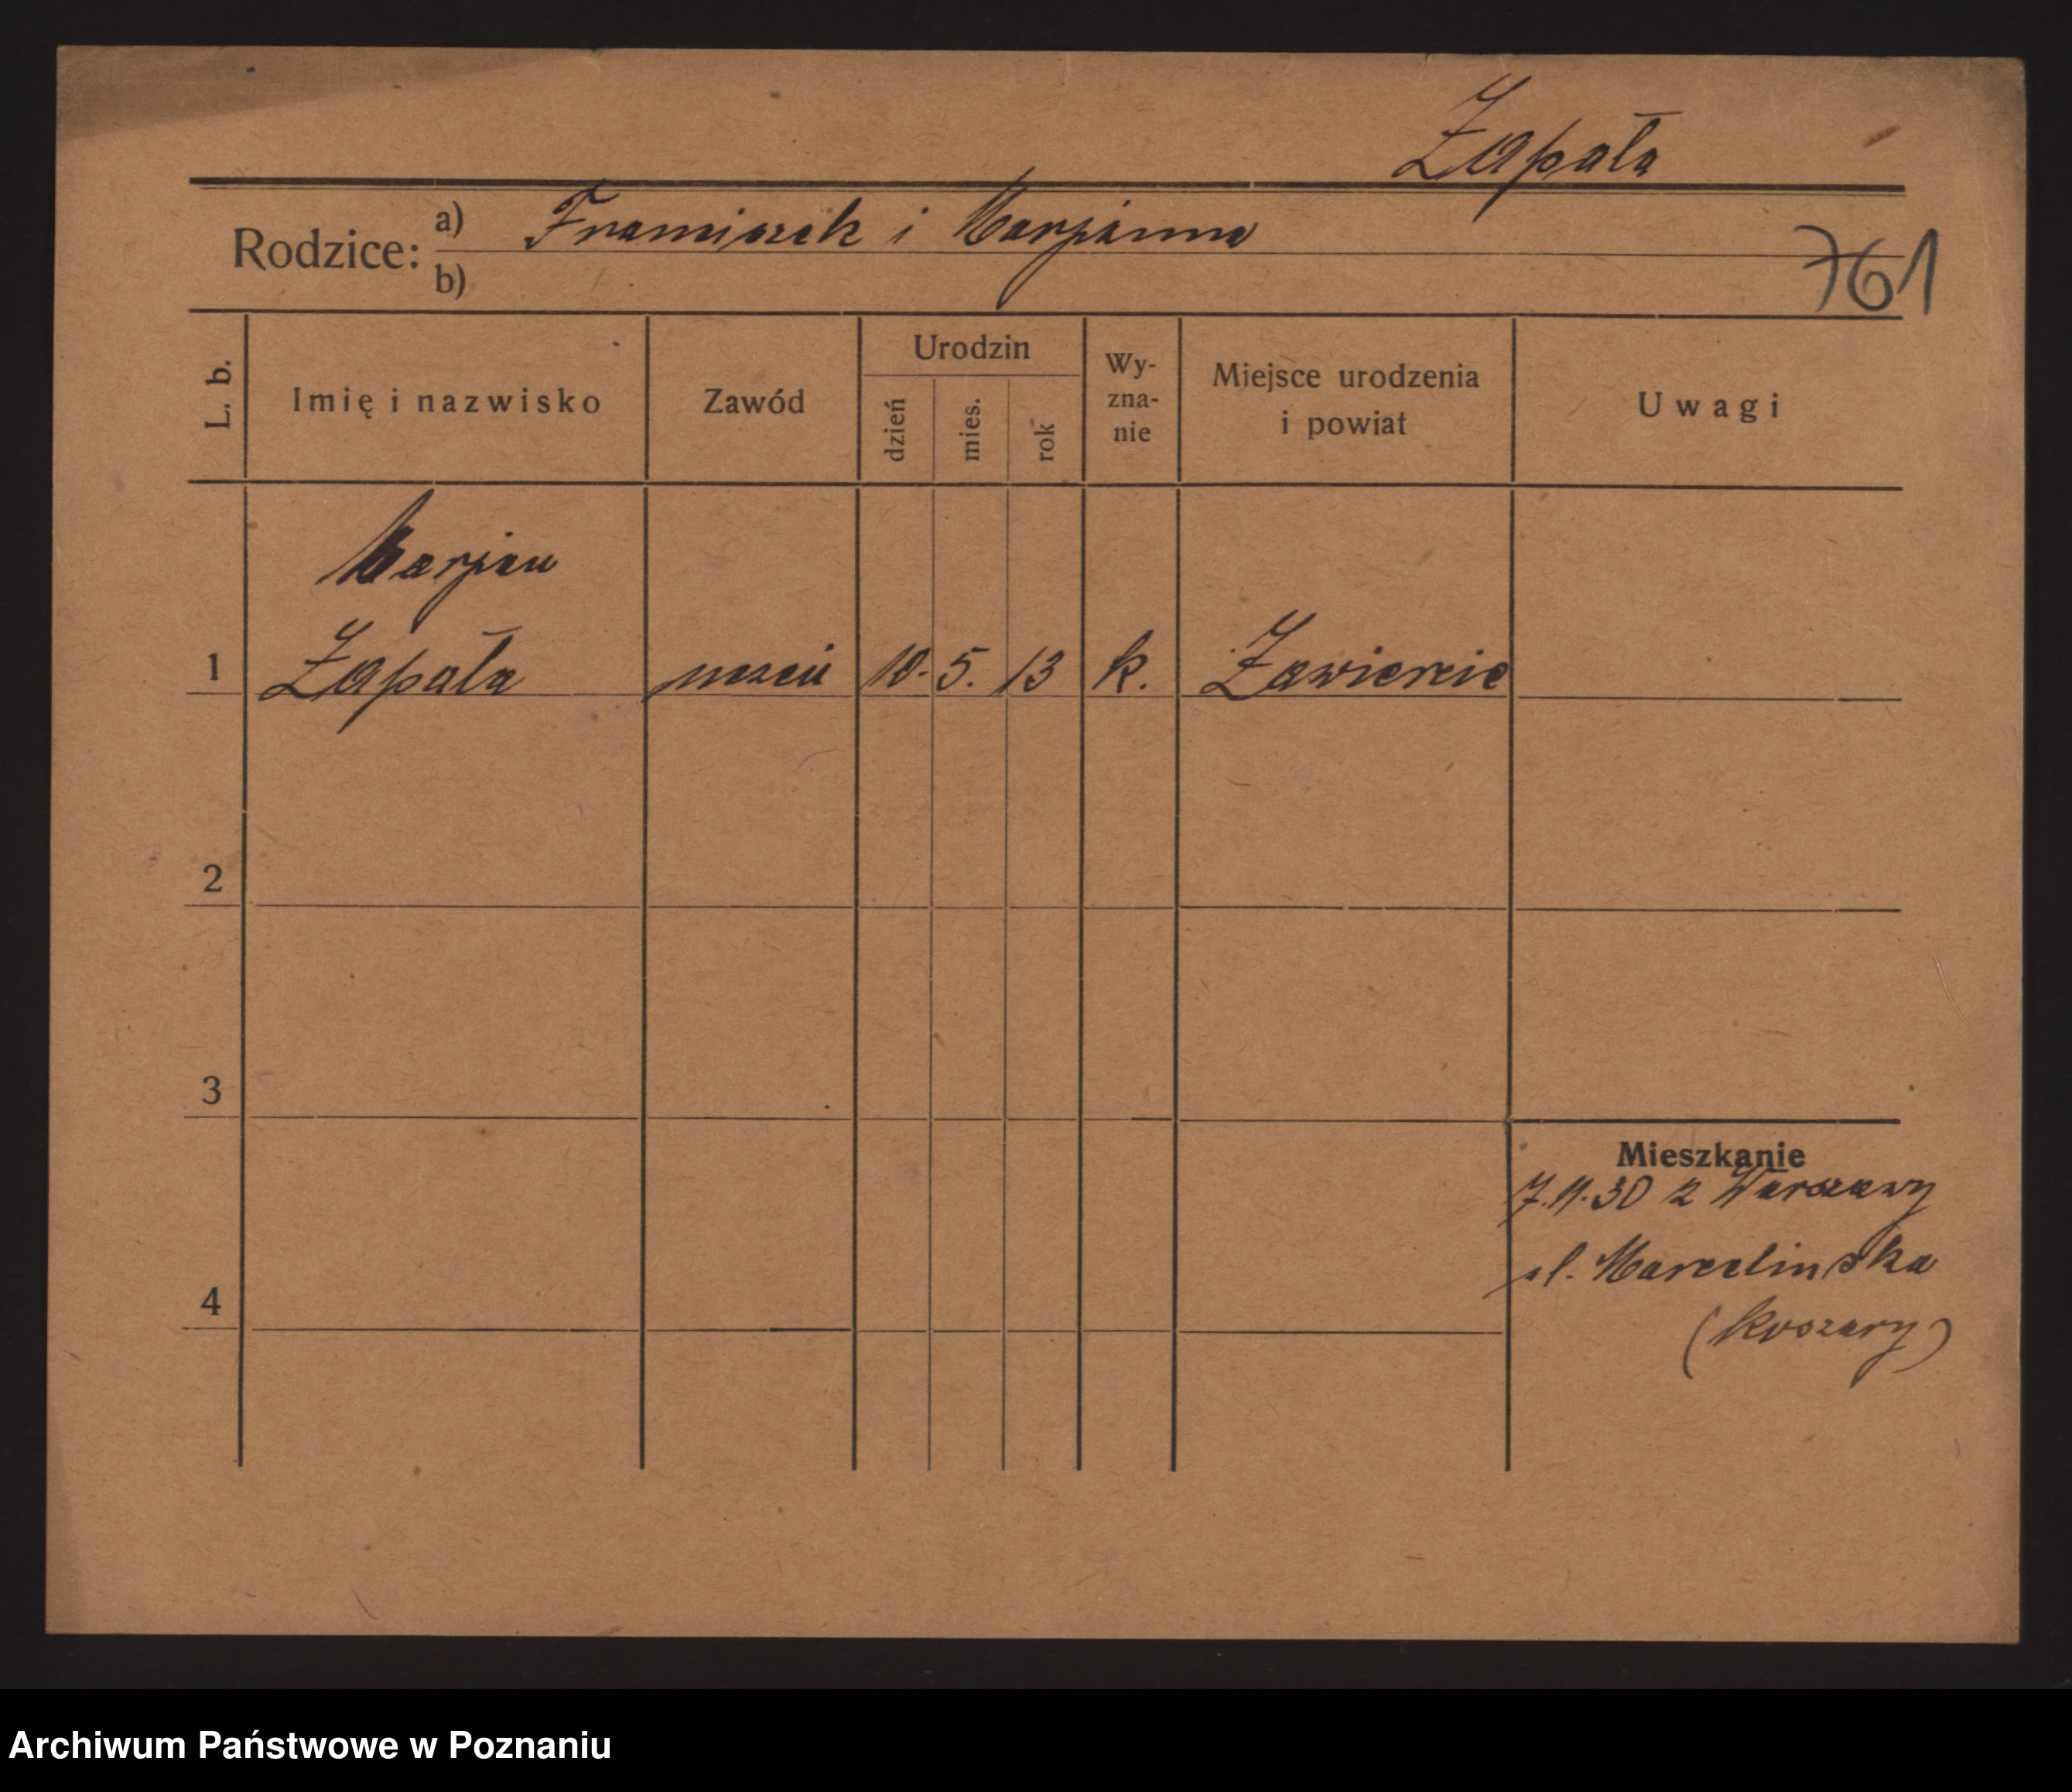 Zapała
Rodzice: a) Franciszek i Marjanna
b)
761
L. b. Imię i nazwisko Zawód Urodzin dzień mies. rok Wy-zna-nie Miejsce urodzenia i powiat Uwagi
Marjan
1 Zapała uczeń 10. 5. 13 k. Zawiercie
2
3
Mieszkanie
7.11.30 z Warszawy
ul. Marcelińska
4
(Koszary)
Archiwum Państwowe w Poznaniu